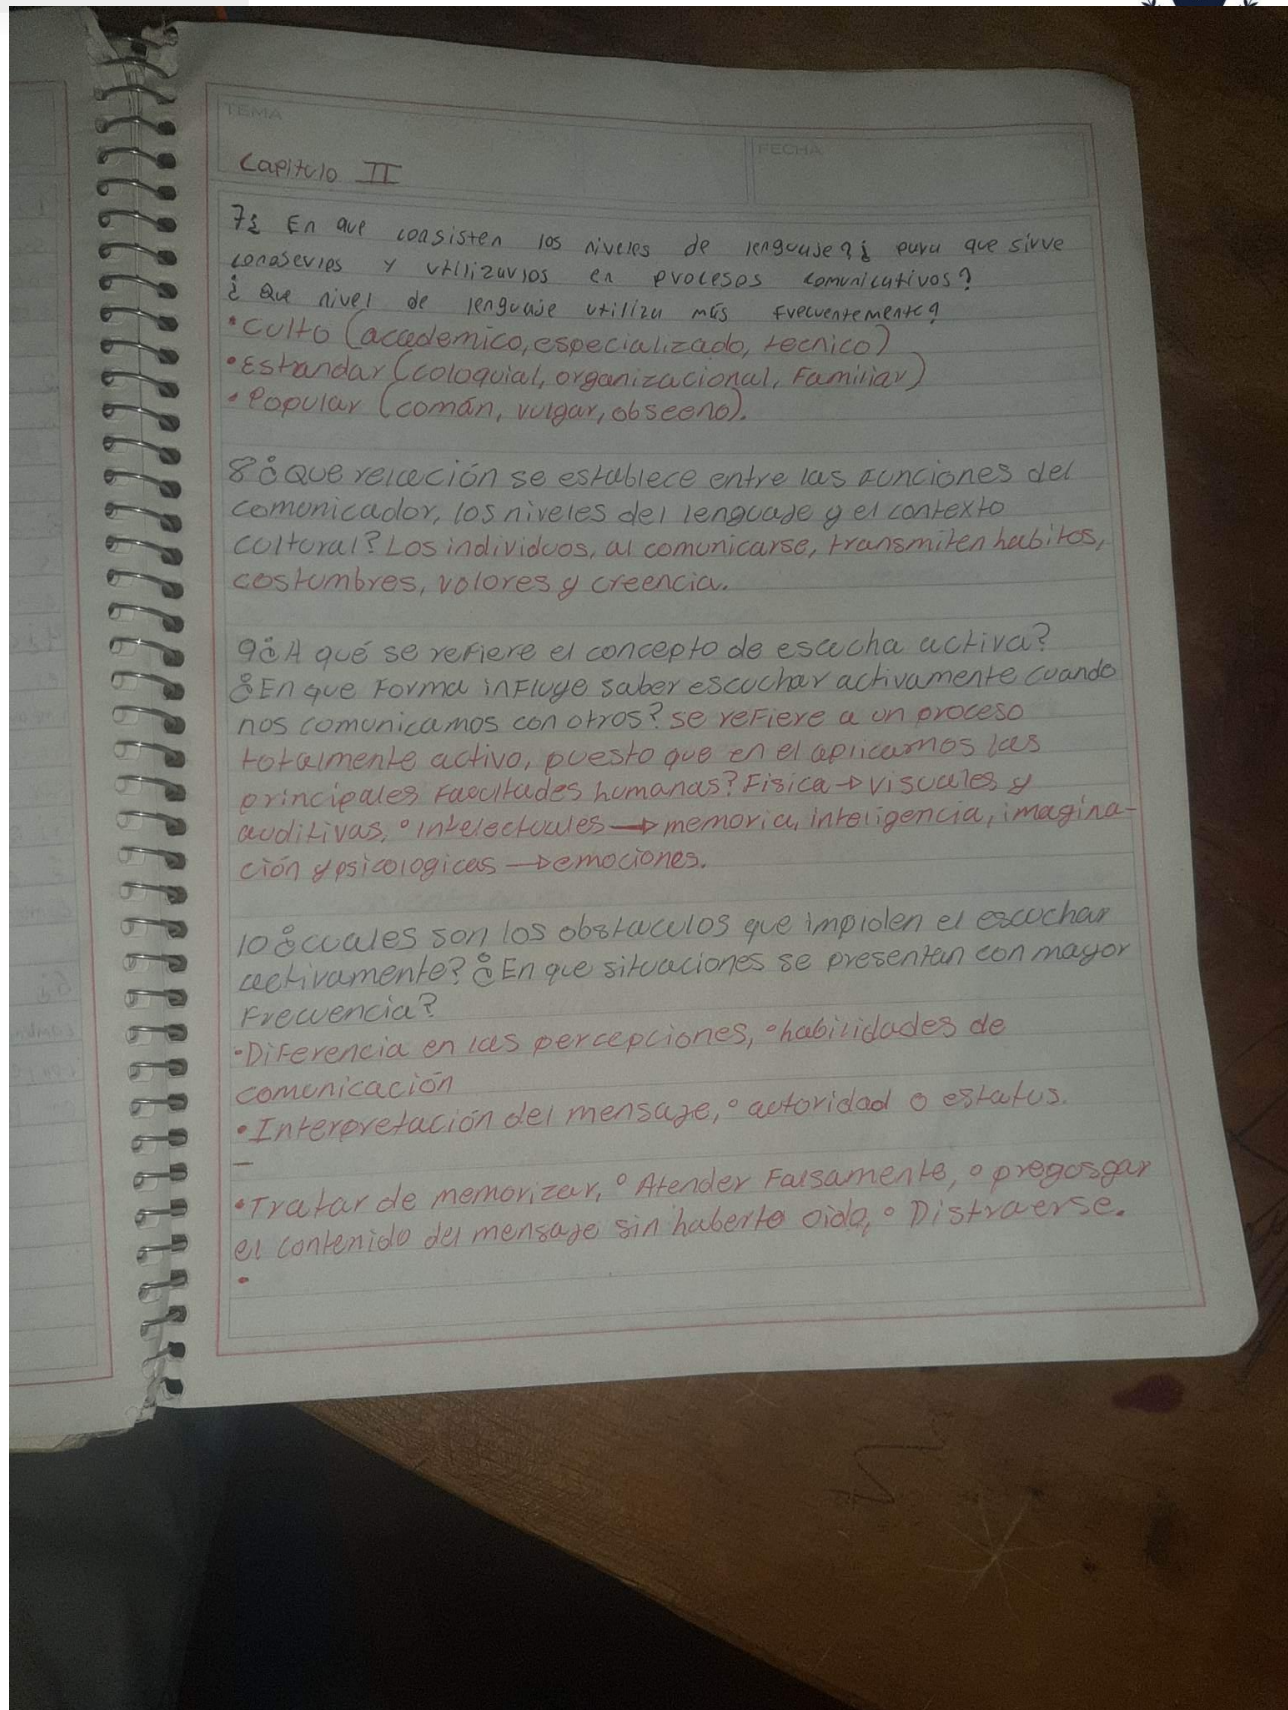 TEMA
FECHA
Capitulo II
7¿ En que consisten los niveles de lenguaje?¿ para que sirve
conoserles y utilizarlos en procesos comunicativos?
¿ Que nivel de lenguaje utiliza más frecuentemente?
•Culto (academico, especializado, tecnico)
•Estandar (coloquial, organizacional, Familiar)
•Popular (común, vulgar, obseeno).
8¿Que relación se establece entre las funciones del
comunicador, los niveles del lenguaje y el contexto
cultural? Los individuos, al comunicarse, transmiten habitos,
costumbres, valores y creencia.
9¿A qué se refiere el concepto de escucha activa?
¿En que Forma inFluye saber escuchar activamente cuando
nos comunicamos con otros? se reFiere a un proceso
totalmente activo, puesto que en el aplicamos las
principales Facultades humanas? Fisica → visuales y
auditivas, °Intelectuales → memoria, inteligencia, imagina-
ción y psicologicas → emociones.
10¿cuales son los obstaculos que impiden el escuchar
activamente? ¿En que situaciones se presentan con mayor
Frecuencia?
•DiFerencia en las percepciones, °habilidades de
comunicación
•Interpretación del mensaje, ° autoridad o estatus.
–
•Tratar de memorizar, ° Atender Falsamente, ° pregosgar
el contenido del mensaje sin haberlo oido, ° Distraerse.
•